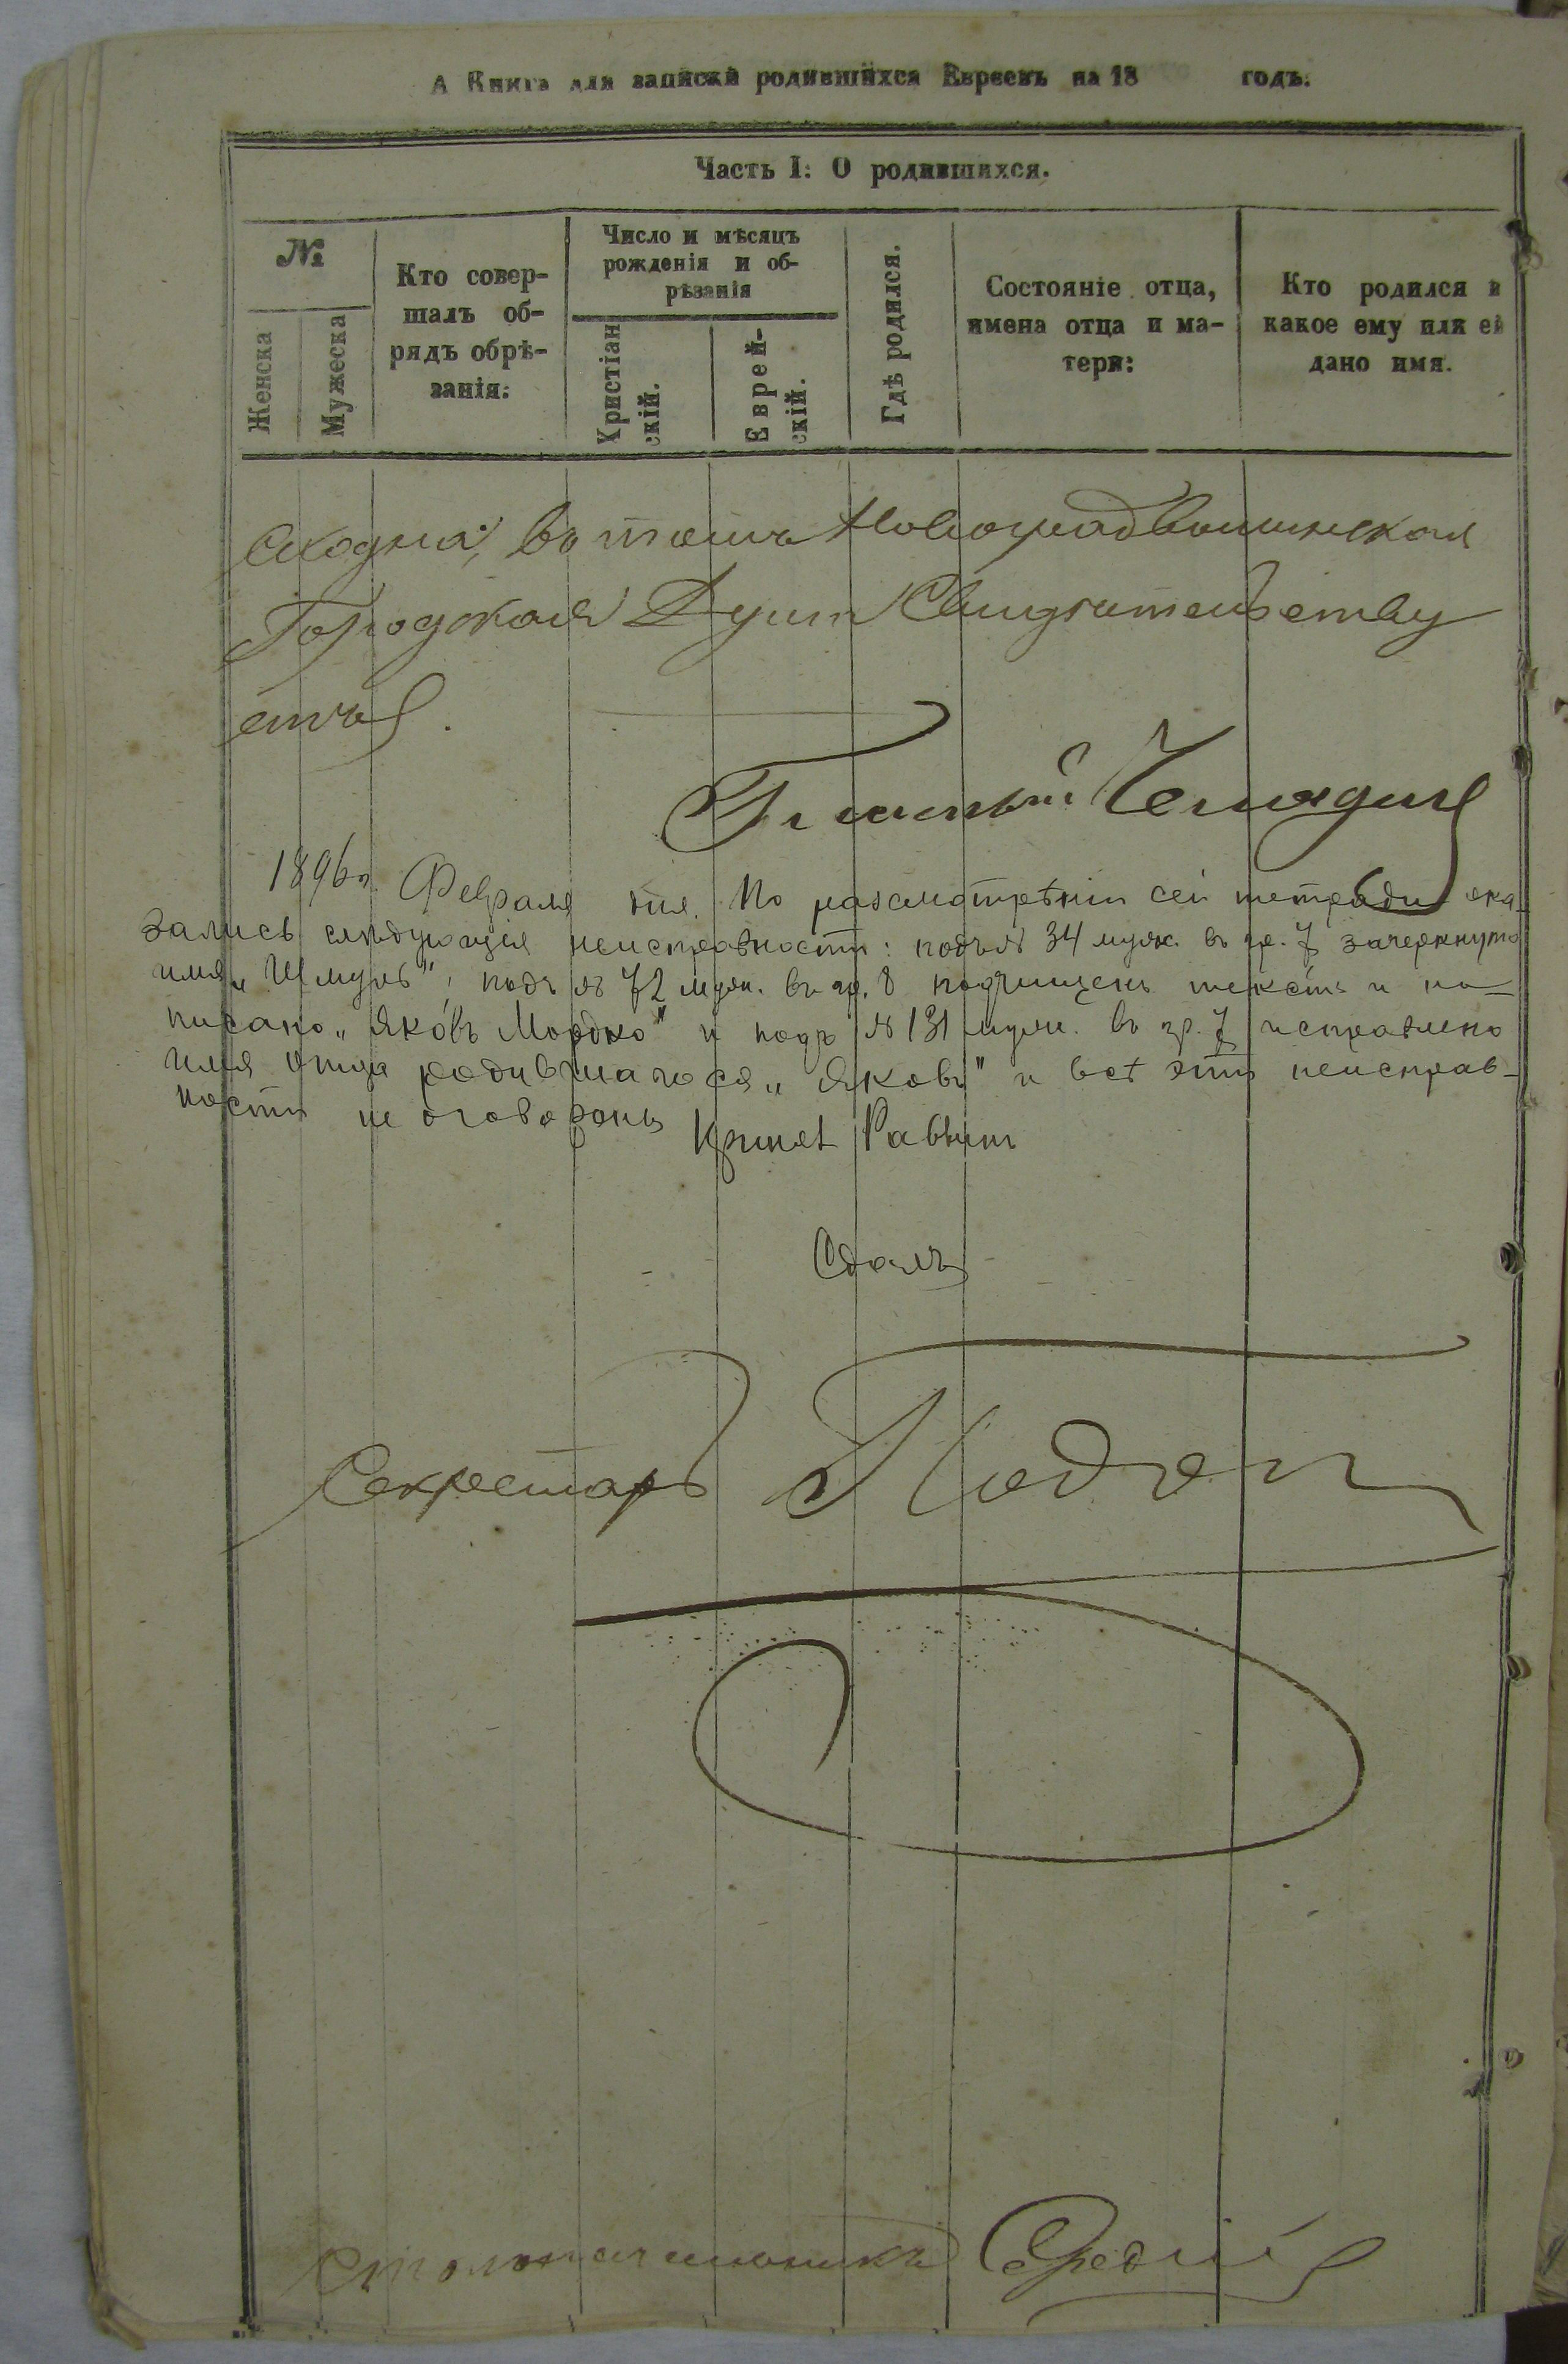 А Книга для записки родившихся Евреевъ на 18 годъ.
Часть I: О родившихся.
№
Женска
Мужеска
Кто совер-
шалъ об-
рядъ обрѣ-
занія:
Число и мѣсяцъ
рожденія и об-
рѣзанія
Христіан
скій.
Еврей-
скій.
Гдѣ родился.
Состояніе отца,
имена отца и ма-
тери:
Кто родился и
какое ему или ей
дано имя.
сходна, въ томъ Новоградволынская
Городская Дума Свидѣтельству
етъ.
Гласный
1896 г. Февраля дня. По разсмотрѣніи сей тетради ока-
зались слѣдующія неисправности: подъ № 34 муж. въ гр. 7 зачеркнуто
имя „Шмуль", подъ № 72 муж. въ гр. 8 подчищенъ текстъ и на-
писано „Яковъ Мордко" и подъ № 131 муж. въ гр. 7 исправлено
имя отца родившагося „Яковъ" и всѣ эти неисправ-
ности не оговорены
Раввинъ
Сдалъ
Секретарь
Столоначальникъ Средній